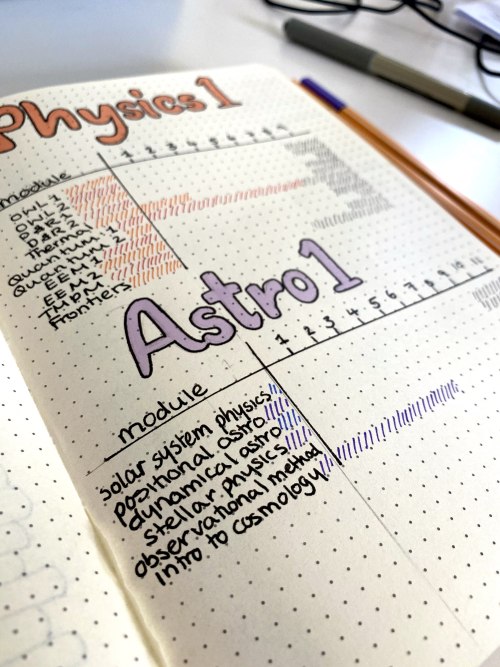 Physics 1
module 1 2 3 4 5 6 7 8 9
OWL 1
OWL 2
D&R 1
D&R 2
Thermal
Quantum 1
Quantum 2
EEM 1
EEM 2
Frontiers
Astro 1
module 1 2 3 4 5 6 7 8 9 10 11
solar system physics
positional astro
dynamical astro
stellar physics
observational method
Intro to cosmology